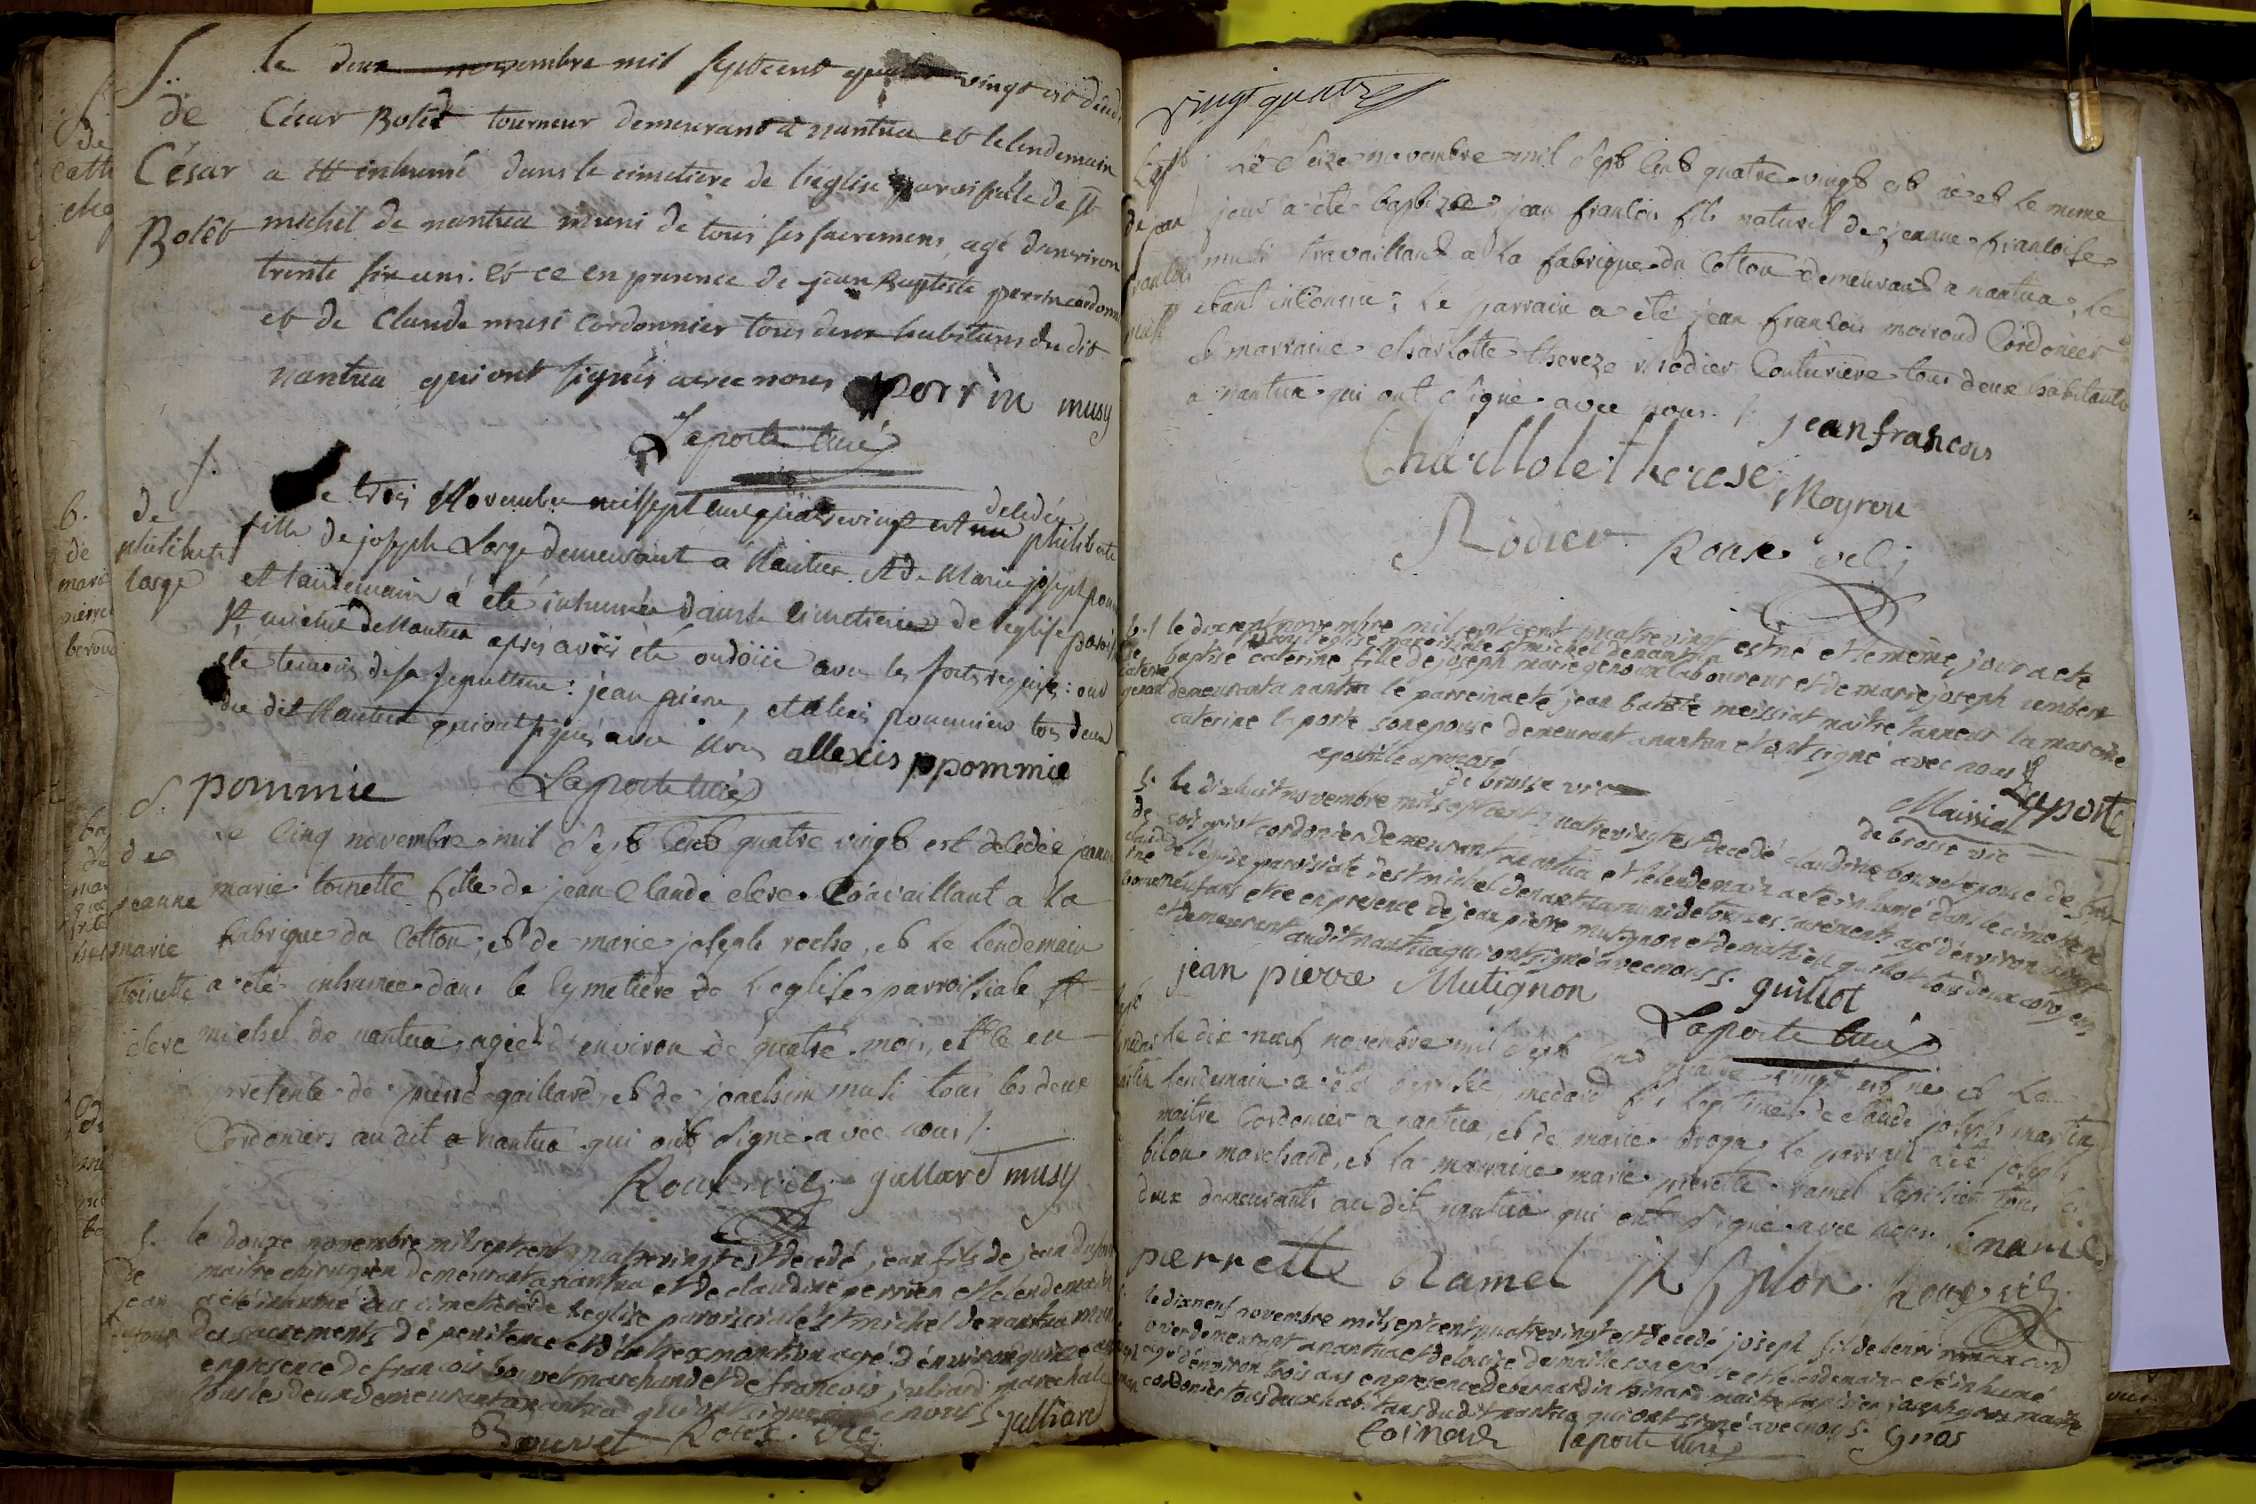 S.
de
César
Bolét
le deux novembre mil septcent quatre vingt est décédé
César Bolét tourneur demeurant a nantua et le lendemain
a été inhumé dans le cimetiere de l'eglise paroissiale de st
michel de nantua muni de tous ses sacremens, agé denviron
trente six ans. et ce en presence de jean Baptiste perrin cordonn
et de Claude musi cordonnier tous deux habitans du dit
nantua qui ont signés avec nous perrin musy
Laporte curé
S.
de
philiberte
large
le trois Novembre mil sept cent quatre vingt est decedée philiberte
fille de joseph Large demeurant a Nantua et de Marie joseph pom
et landemain a été inhumée dans le cimetiere de leglise parois
st michel de Nantua apres avoir été ondoiée avec les formes requises: ont
été temoins de sa sepulture: jean piere, et alexis pommier tos deux
du dit Nantua qui ont signés avec Nous allexis ppommie
pommie Laporte curé
S.
de
jeanne
marie
toinette
clerc
Le Cinq novembre mil sept cent quatre vingt est decedée jeanne
marie toinette fille de jean Claude clerc travaillant a la
fabrique du Cotton, et de marie joseph roche, et le lendemain
a été inhumée dans le Cymetière de l'eglise parroissiale st
michel de nantua, agée d'environ de quatre mois, et ce en
presente de pierre gaillard et de joachim musi tous les deux
Cordoniers au dit a Nantua qui ont signé avec nous /.
Roux vic gallard musy
S.
de
jean
le douze novembre mil septcent quatre vingt est decedé, jean fils de jean dufour
maitre chirurgien demeurant a nantua et de claudine perrier et le lendemain
a été inhumé au cimetiere de leglise paroissiale st michel de nantua muni
des sacrements de penitence et dextremonction agé d'environ quinze ans
en presence de francois bouvet marchand et de francois julliard marechal
tous les deux demeurant a nantua qui ont signé avec nous julliard
Bouvet Roux vic
vingt quatre
Bapt
de jean
françois
musi
Le Seize novembre mil sept cent quatre vingt est né et le meme
jour a été baptizé jean francois fils naturel de jeanne francoise
musi travaillant a la fabrique du Cotton demeurant a nantua, le
étant inconnu; Le parrain a été jean francois moiroud Cordonier
et marraine Charlotte thereze rhodier Couturière tous deux habitants
a nantua qui ont signé avec nous /. jean francois
Charllote therese Moyrou
Rodier Roux vic
b.
de
caterine
genou
le dixsept novembre mil sept cent quatre vingt est né et le même jour a été
dans l'eglise paroissiale st michel de nantua
baptisé caterine fille de joseph marie genoux laboureur et de marie joseph umbert
demeurant a nantua le parrein a été jean batiste meissiat maitre tanneur la mareine
caterine laporte son epouse demeurant a nantua et ont signé avec nous
apostille aprouvé
de brosse vic Laporte
Maissiat
de brosse vic
S.
de
claudine
bouvet
le dixhuit novembre mil septcent quatrevingt est decedé claudine bouvet epouse de
cordonier demeurant a nantua et le lendemain a été inhumé dans le cimetiere
de l'eglise paroissiale de st michel de nantua muni de tous ses sacrement agé d'environ
et ce en presence de jean pierre mutignon et de mathieu guillot tous deux
demeurant audit nantua qui ont signé avec nous
jean pierre Mutignon guillot
Laporte curé
bapt
medard
martin
Le dix neuf novembre mil sept cent quatre vingt est né et Le
lendemain a été baptisé medard fils legitime de Claude joseph martin
maitre Cordonier a nantua, et de marie brogn le parrain a été joseph
bilon marchand, et la marraine marie pierette ramel tous les
deux demeurants au dit nantua qui ont signé avec nous /. marie
pierrette Ramel Bilon Roux vic
le dixneuf novembre mil septcent quatrevingt est decedé joseph fils de henri
demeurant a nantua et de louise son epouse et le lendemain a été inhumé
agé d'environ trois ans en presence de bernardin toinard maitre tapissier joseph gros maitre
cordonier tous deux habitans du dit nantua qui ont signé avec nous. Gros
toinard laporte curé